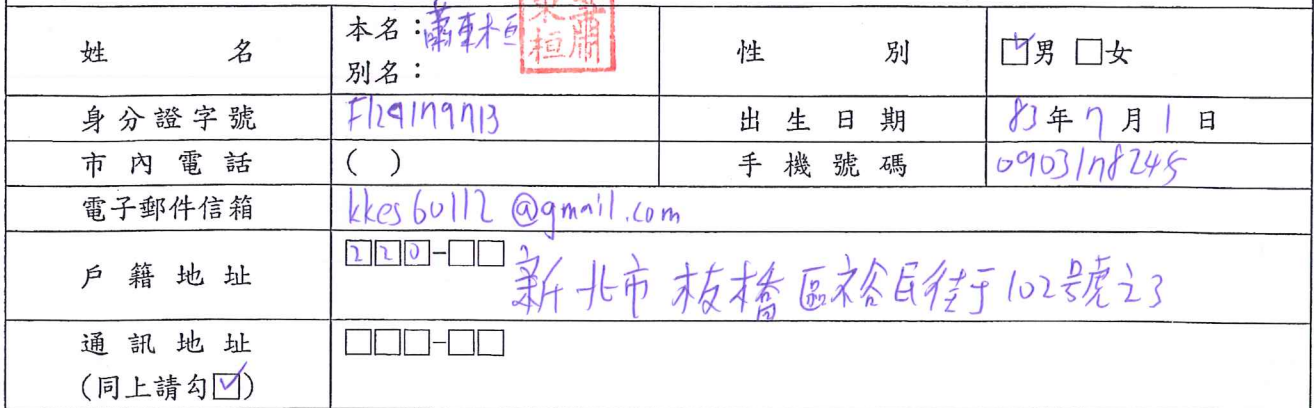 姓名 本名：蕭東桓 東桓蕭 性別 ☑男 □女
別名：
身分證字號 F129179713 出生日期 83年7月1日
市內電話 ( ) 手機號碼 0903178245
電子郵件信箱 kkes60112@gmail.com
戶籍地址 220-□□ 新北市板橋區裕民街102號之3
通訊地址 □□□-□□
(同上請勾☑)